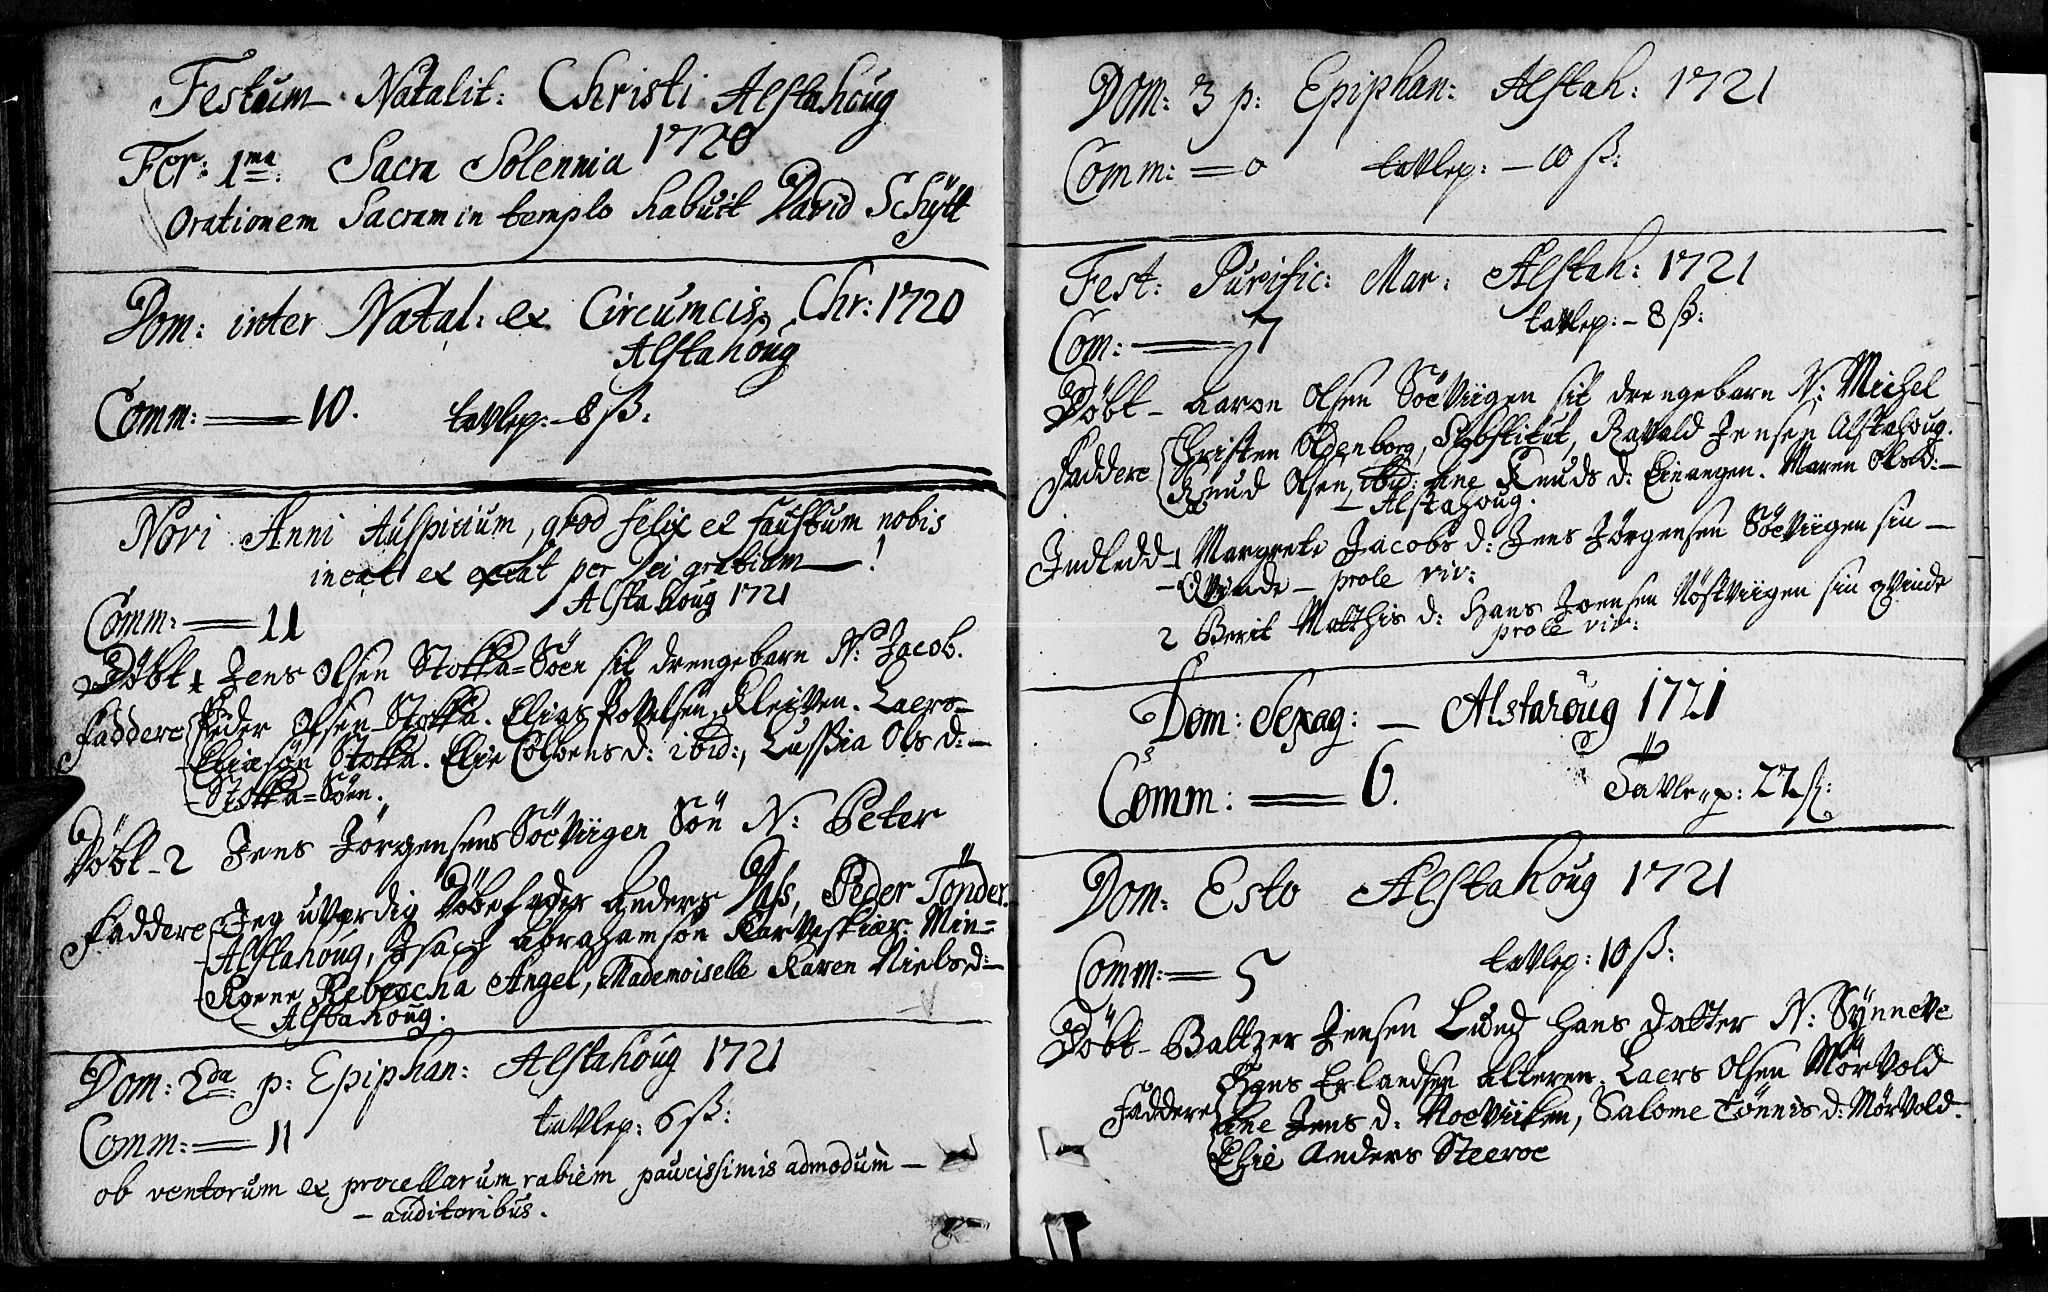 Festum Natalit: Christi Alstahoug
1720
Fer: 1ma: Sacra Solennia
Orationem Sacram in templo habuit David Schytt
Dom: inter Natal: et Circumcis: Chr: 1720
Alstahoug
Comm: — 10. tavlep: – 8 ß:
Novi Anni Auspicium, qvod felix et faustum nobis
ineat et exeat per Dei gratiam — !
Alstahoug 1721
Comm: — 11
Döbt 1 Jens Olsen Stokka=Söen sit drengebarn N: Jacob.
Faddere Peder Olsen Stokka. Elias Povelsen Kleiven. Laers–
– Eliæsön Stokka. Elie Colbens d: ibid:, Lussia Ols d: –
– Stokka=Söen.
Döbt – 2 Jens Jörgensens Söeviigen Sön N: Peter
Faddere Jeg uværdig Döbefader Anders Dass, Peder Tönder
– Alstahoug, Isach Abrahamsön Karveskiær: Min=
– Koene Rebeccha Angel, Mademoiselle Karen Niels d: –
– Alstahoug.
Dom: 2da: p: Epiphan: Alstahoug 1721
Comm: — 11 tavlep: 6 ß:
ob ventorum et procellarum rabiem paucissimis admodum –
– auditoribus.
Dom: 3 p: Epiphan: Alstah: 1721
Comm: = 0 tavlep: – 10 ß:
Fest: Purific: Mar: Alstah: 1721
Com: — 7 tavlep: – 8 ß:
Döbt – Aaron Olsen Söeviigen sit drengebarn N: Michel
Faddere Christen Oldenborg, Substitut, Ravald Jensen Alstahoug.
Knud Olsen, ibid: Ane Knuds d: Einangen. Maren Ols d: –
– Alstahoug.
Indledd – 1 Margrete Jacobs d: Jens Jörgensen Söeviigen sin –
– Qvinde – prole viv:
2 Berit Matthis d: Hans Joensen Nöstviigen sin qvinde
prole viv:
Dom: Sexag: — Alstahoug 1721
Comm: — 6. Tavlep: 22 ß:
Dom: Esto Alstahoug 1721
Comm: — 5 tavlep: 10 ß:
Döbt – Baltzer Jensen Lund hans datter N: Synneve
Faddere Hans Erlandsen Alteren. Laers Olsen Mörvold
Ane Jens d: Moeviiken, Salome Tönnis d: Mörvold.
Elsie Anders Steeroe